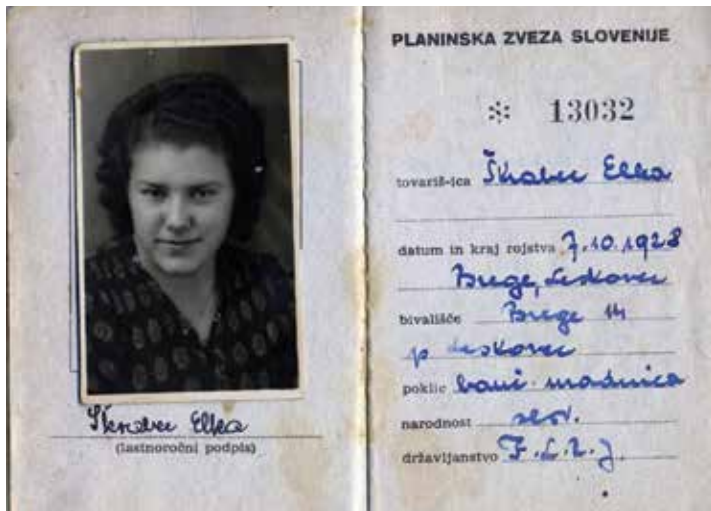 Škrabec Elka
(lastnoročni podpis)
PLANINSKA ZVEZA SLOVENIJE
13032
tovariš-ica Škrabec Elka
datum in kraj rojstva 7.10.1928
Brege, Leskovec
bivališče Brege 14
p Leskovec
poklic
narodnost slov.
državljanstvo F.L.R.J.